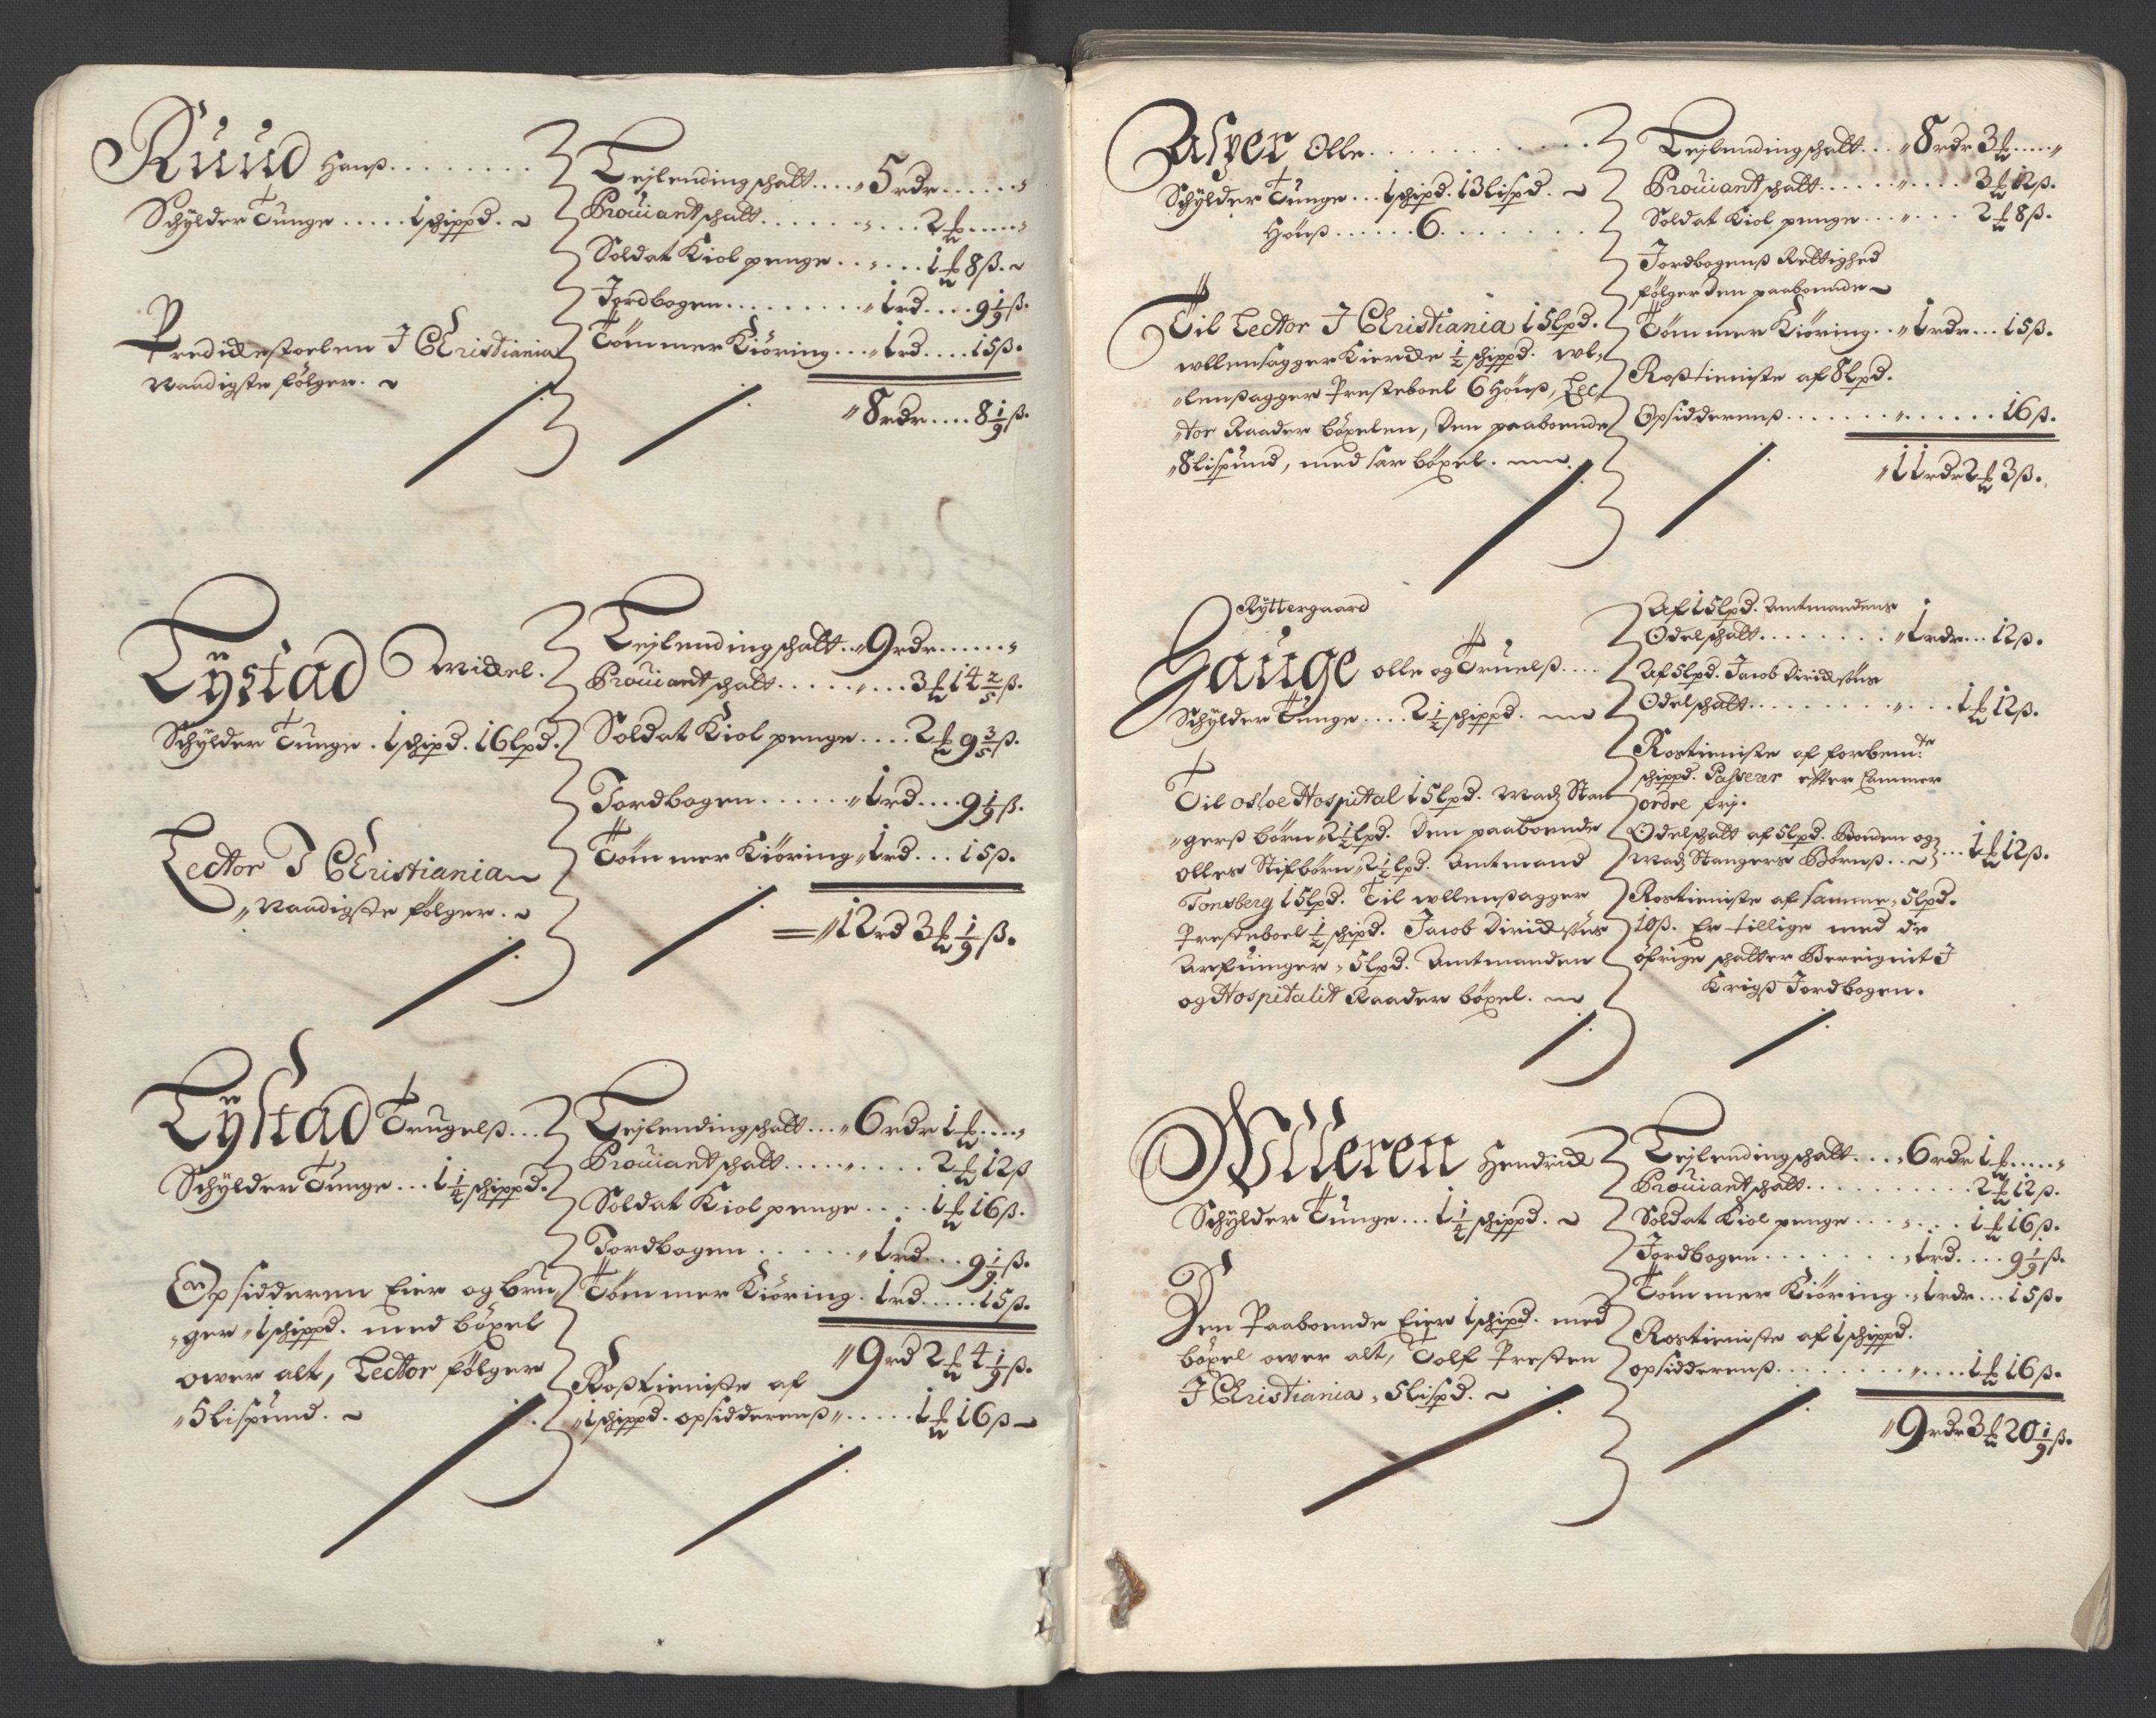 Ruud Hanß . . . . . . . .
Schylder Tunge . . . . . 1 schippd.
Predickestoelen I Christiania
Naadigste følger.
Leylendingschatt . . . . 5 rdr . . . . . .
Prouiantschatt . . . . . . . . . 2 # . . . . .
Soldat Kiol penge . . . . . . 1 # 8 ß.
Jordbogen . . . . . . . . . 1 rd . . . . 9 1/9 ß.
Tømmer Kiøring . . . 1 rd . . . . 15 ß.
8 rdr . . . . 8 1/9 ß.
Tÿstad Mickel.
Schylder Tunge . 1 schipd. 16 lpd.
Lector I Christiania
Naadigste følger.
Leylendingschatt . . 9 rdr . . . . . .
Prouiantschatt . . . . . . . . 3 # 14 2/5 ß.
Soldat Kiol penge . . . . 2 # 9 3/5 ß.
Jordbogen . . . . . . 1 rd . . . . 9 1/9 ß.
Tømmer Kiøring 1 rd . . . 15 ß.
12 rd 3 # 1/9 ß.
Tÿstad Trugelß . . .
Schylder Tunge . . . 1 1/4 schippd.
Opsidderen Eier og bru-
ger 1 schippd. med böxel
ower alt, Lector følger
5 lispund.
Leylendingschatt . . . 6 rdr 1 # . . . .
Prouiantschatt . . . . . . . . . 2 # 12 ß
Soldat Kiol penge . . . . 1 # 16 ß.
Jordbogen . . . . . . 1 rd . . . 9 1/9 ß.
Tømmer Kiøring . 1 rd . . . . . 15 ß.
9 rd 2 # 4 1/9 ß.
Rostieniste af
1 schippd. opsidderenß . . . . . 1 # 16 ß
Asper Olle . . . . . . . . . . .
Schylder Tunge . . . 1 schipd. 13 lispd.
Hönß . . . . . . 6 . . . . . . .
Til Lector I Christiania 15 lpd.
wllensagger Kiercke 1/2 schippd. wl-
lenßagger Presteboel 6 Hönß, Lec-
tor Raader böxelen, Den paaboende
8 lispund, med sær böxel.
Leylendingschatt . . . 8 rdr 3 # . . . . .
Prouiantschatt . . . . . . . . . 3 # 12 ß.
Soldat Kiol penge . . . . . . 2 # 8 ß.
Jordbogenß Rettighed
følger Den paaboende
Tømmer Kiøring . . 1 rdr . . . 15 ß.
Roßtieniste af 8 lpd.
Opsidderenß . . . . . . . . . . . . . 16 ß.
11 rdr 2 # 3 ß.
Ryttergaard
Hauge olle og Truelß . . . .
Schylder Tunge . . . . 2 1/2 schippd.
Til Osloe Hospital 15 lpd. Madz Stan-
gerß børn 2 1/2 lpd. Den paaboende
olles Stifbørn 2 1/2 lpd. Amtmand
Tonsberg 15 lpd. Til wllenßagger
Presteboel 1/2 schipd. Jacob Dirichsöns
Arfuinger 5 lpd. Amtmanden
og Hospitalit Raader böxel.
Af 15 lpd. Amtmandens
Odelschatt . . . . . . . . 1 rdr . . . 12 ß.
Af 5 lpd. Jacob Dirichsöns
Odelschatt . . . . . . . . . . . . 1 # 12 ß.
Rostieniste af forbemte
schippd. Passerer efter Cammer
ordre frj.
Odelschatt af 5 lpd. Bonden og
Madz Stangers Børnß . . . . . 1 # 12 ß.
Rostieniste af samme 5 lpd.
10 ß. Er tillige med de
öfrige schatter Berignit I
Krigß Jordbogen.
Wlleren Hendrick
Schylder Tunge . . . 1 1/4 schippd.
Den Paaboende Eier 1 schipd. med
böxel ower alt, Tolf Presten
I Christiania 5 lispd.
Leylendingschatt . . . . 6 rdr 1 # . . . .
Prouiantschatt . . . . . . . . . . . 2 # 12 ß.
Soldat Kiol penge . . . . . . . 1 # 16 ß.
Jordbogen . . . . . . . . 1 rd . . . . 9 1/9 ß.
Tømmer Kiøring . . 1 rdr . . . 15 ß.
Rostieniste af 1 schippd.
opsidderenß . . . . . . . . . . . . 1 # 16 ß.
9 rdr 3 # 20 1/9 ß.